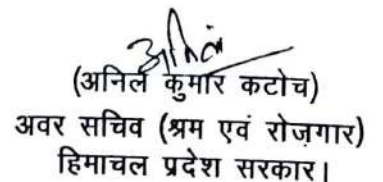 (अनिल कुमार कटोच)
अवर सचिव (श्रम एवं रोज़गार)
हिमाचल प्रदेश सरकार।